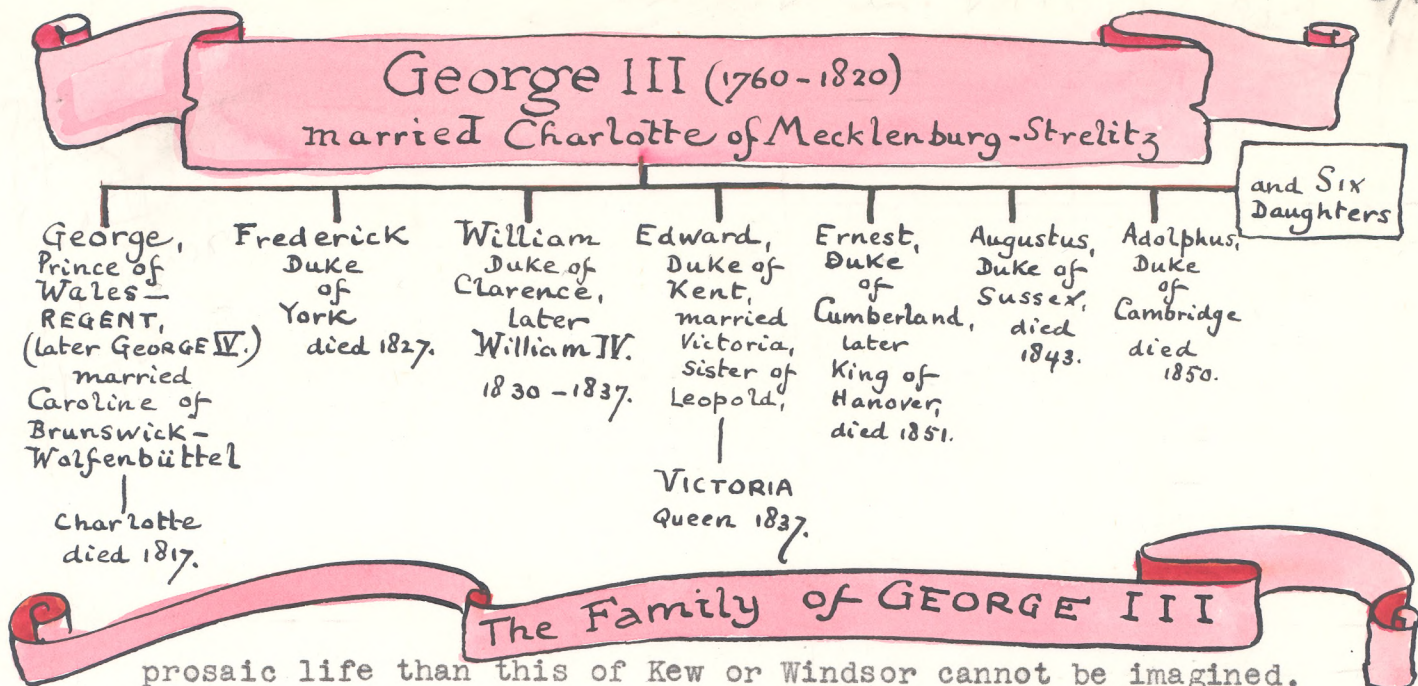 George III (1760-1820)
married Charlotte of Mecklenburg-Strelitz
and Six
Daughters
George,
Prince of
Wales—
REGENT,
(later GEORGE IV.)
married
Caroline of
Brunswick-
Wolfenbüttel
Charlotte
died 1817.
Frederick
Duke
of
York
died 1827.
William
Duke of
Clarence,
later
William IV.
1830-1837.
Edward,
Duke of
Kent,
married
Victoria,
Sister of
Leopold,
VICTORIA
Queen 1837.
Ernest,
Duke
of
Cumberland,
later
King of
Hanover,
died 1851.
Augustus,
Duke of
Sussex,
died
1843.
Adolphus,
Duke
of
Cambridge
died
1850.
The Family of GEORGE III
prosaic life than this of Kew or Windsor cannot be imagined.